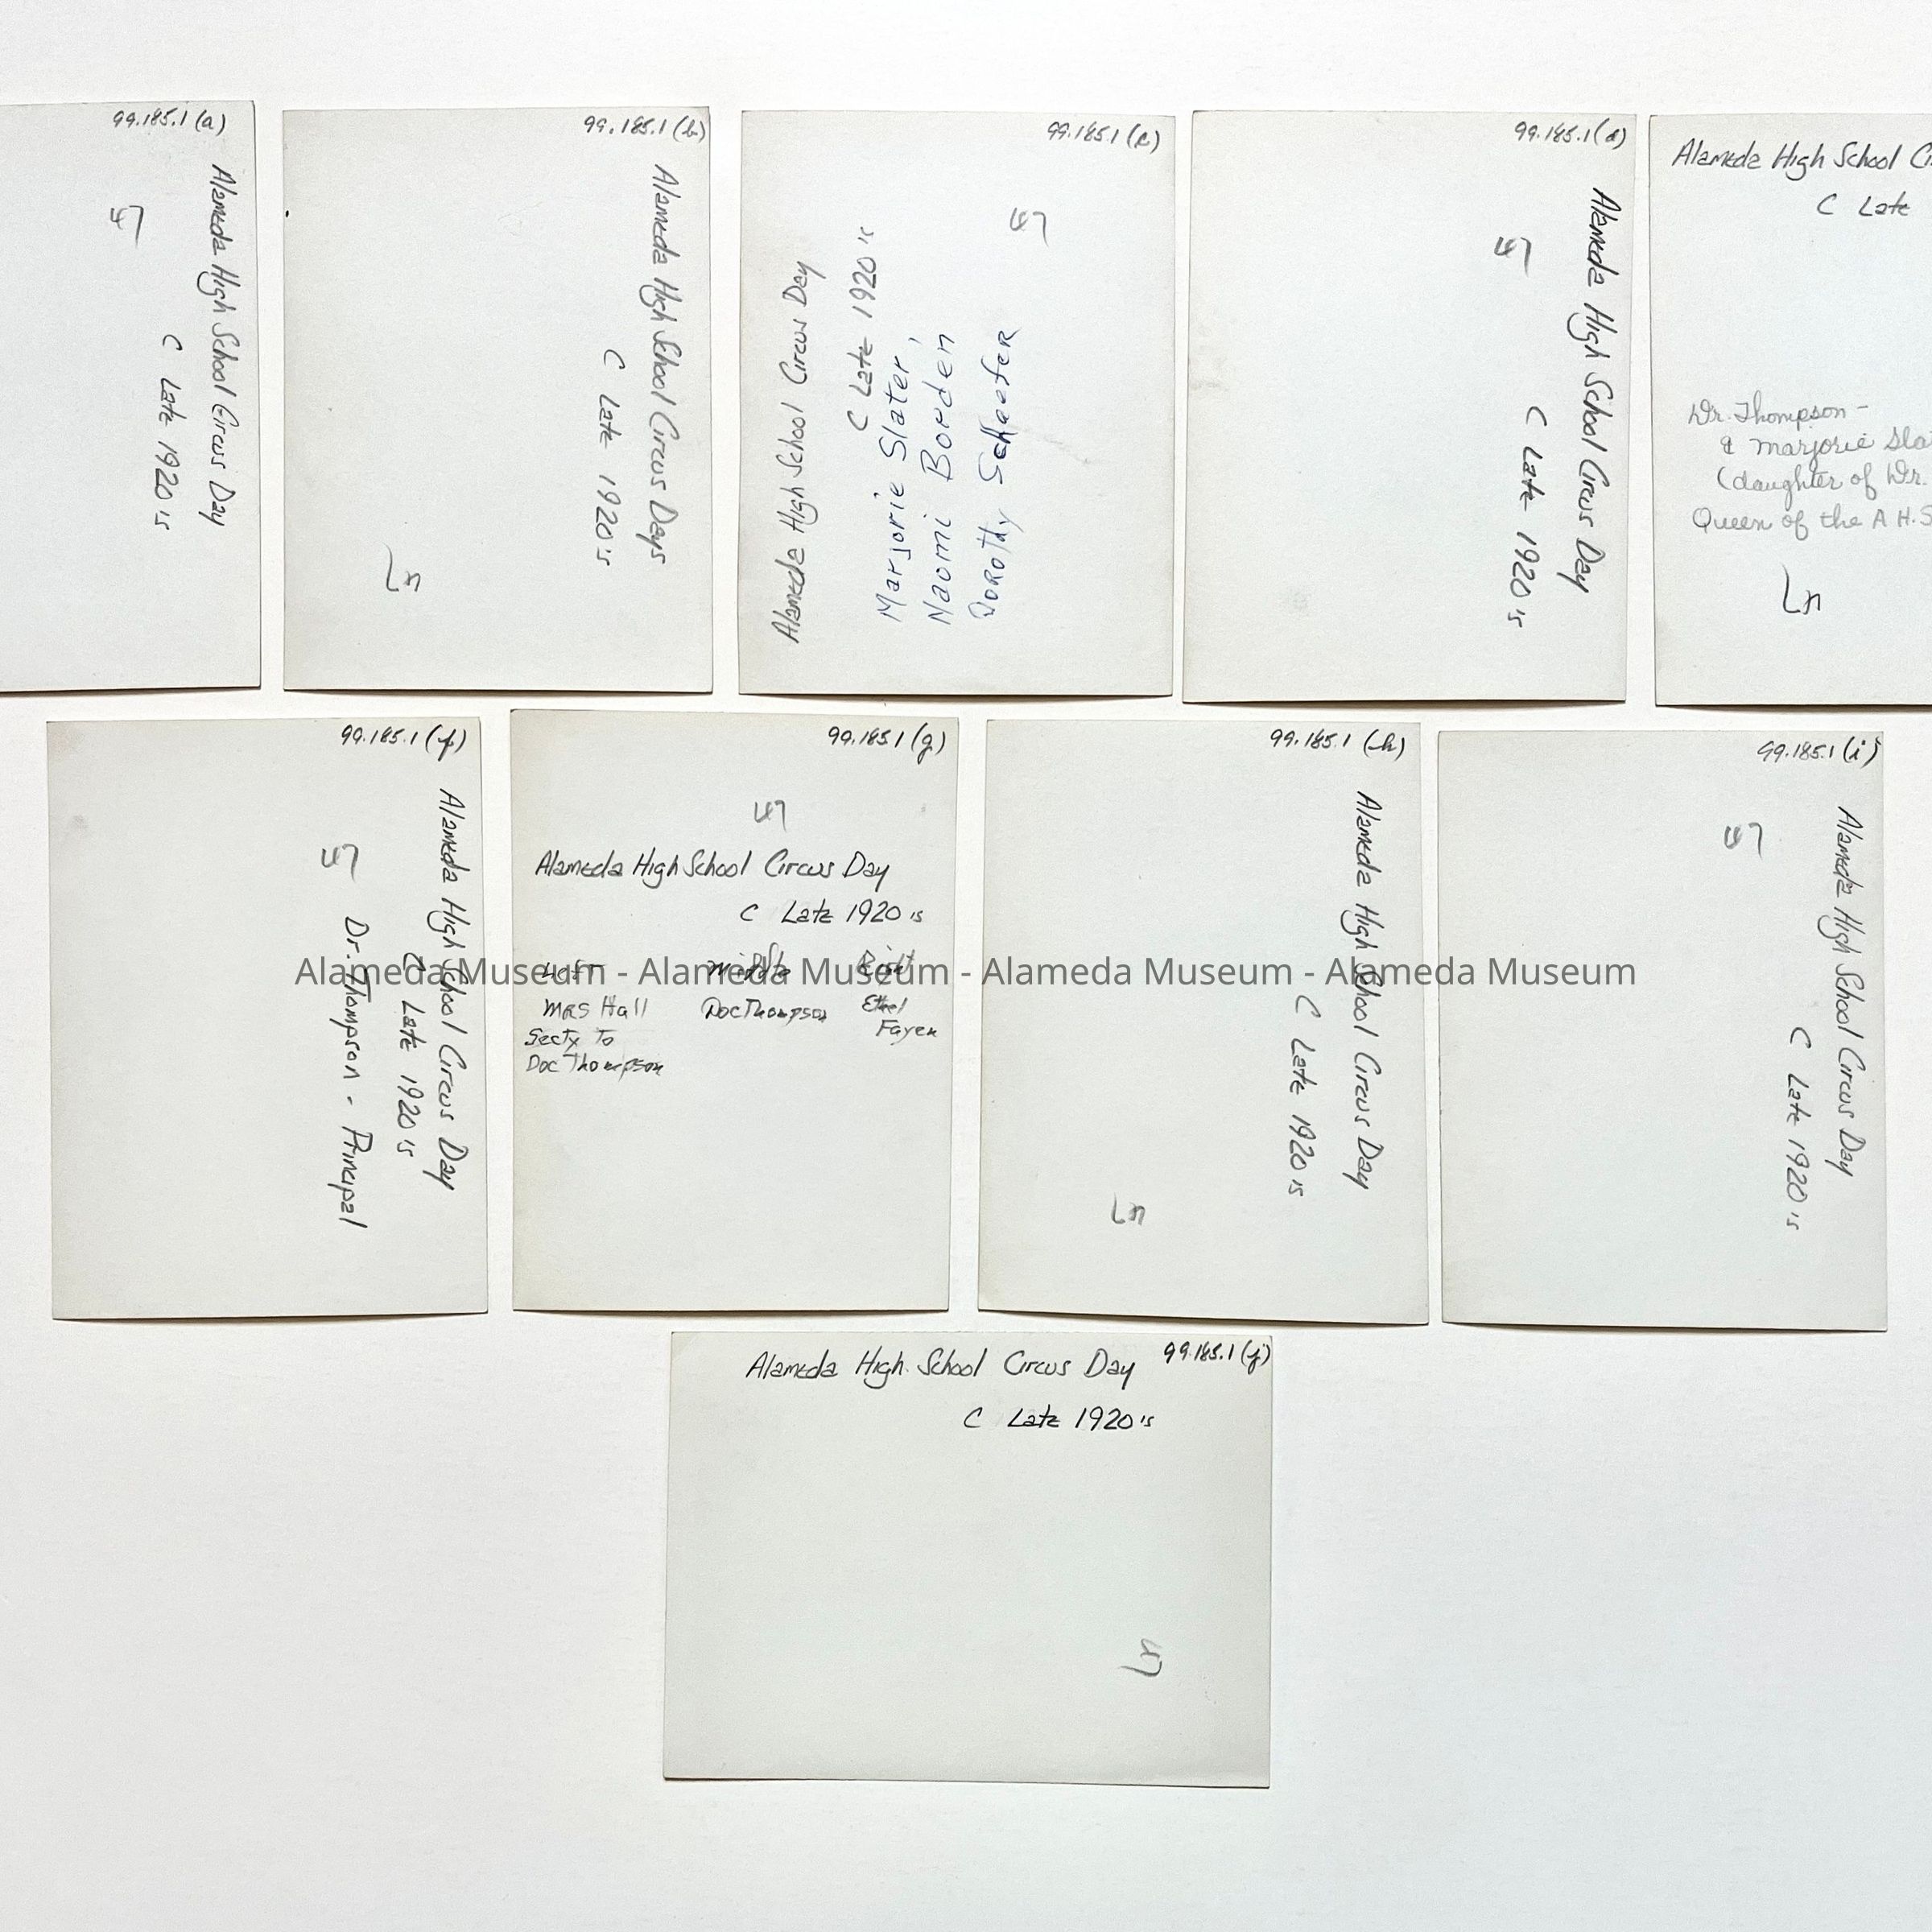 99.185.1 (a)
Alameda High School Circus Day
C Late 1920's
47
99.185.1 (b)
Alameda High School Circus Days
C Late 1920's
47
99.185.1 (c)
47
Alameda High School Circus Day
C Late 1920's
Marjorie Slater,
Naomi Borden
Dorothy Schaefer
99.185.1 (d)
Alameda High School Circus Day
C Late 1920's
47
Alameda High School
C Late
Dr. Thompson -
& Marjorie
(daughter of Dr.
Queen of the A.H.S
47
99.185.1 (f)
Alameda High School Circus Day
C Late 1920's
Dr. Thompson - Principal
47
99.185.1 (g)
47
Alameda High School Circus Day
C Late 1920's
Left Middle Right
Mrs Hall Doc Thompson Ethel
Fayen
Secty To
Doc Thompson
99.185.1 (h)
Alameda High School Circus Day
C Late 1920's
47
99.185.1 (i)
Alameda High School Circus Day
C Late 1920's
47
Alameda Museum - Alameda Museum - Alameda Museum - Alameda Museum
99.185.1 (j)
Alameda High School Circus Day
C Late 1920's
47